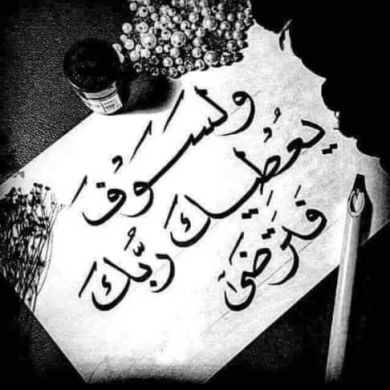 ولَسَوْفَ
يُعْطِيكَ رَبُّكَ
فَتَرْضَىَ